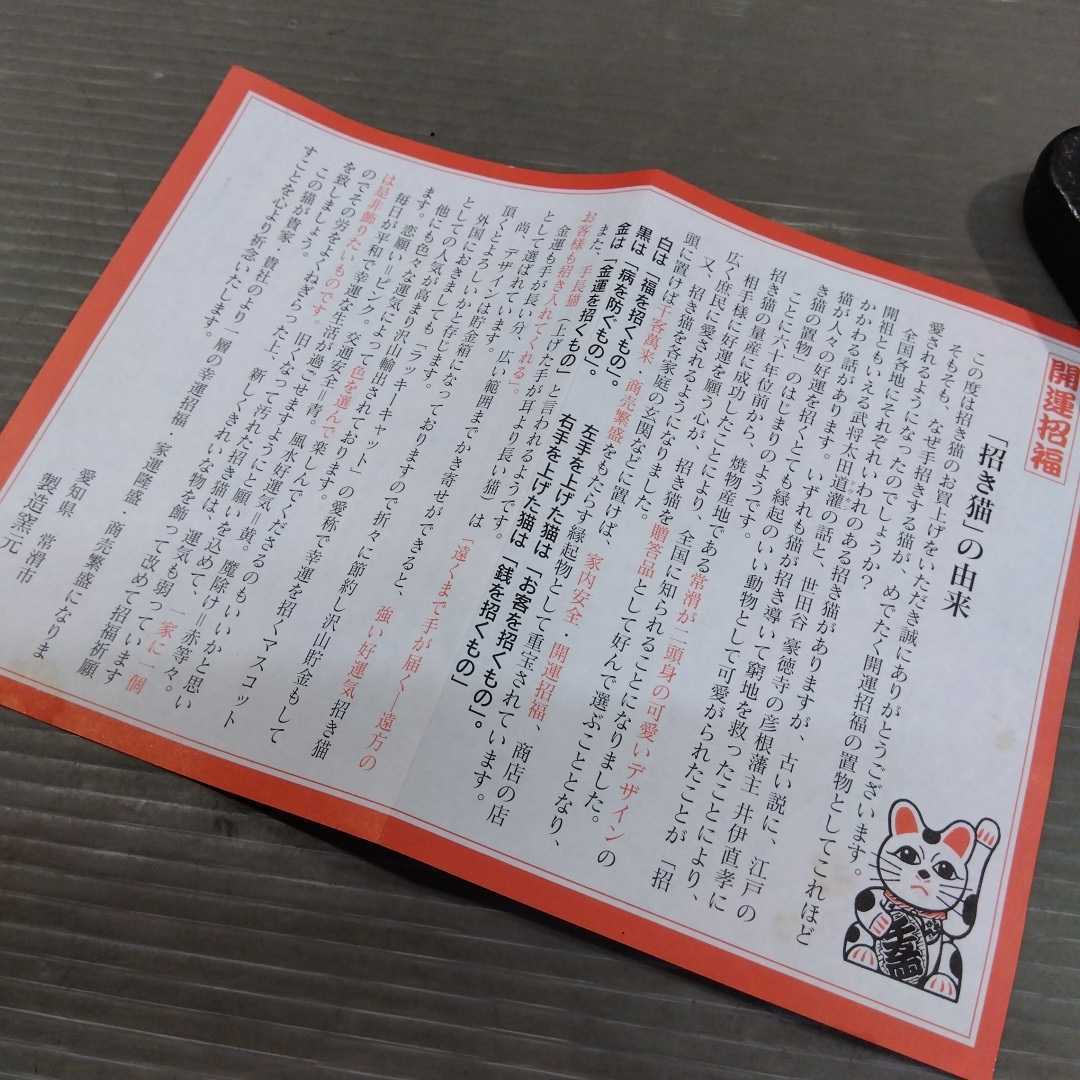 開運招福
「招き猫」の由来
この度は招き猫のお買上げをいただき誠にありがとうございます。
そもそも、なぜ手招きする猫が、めでたく開運招福の置物としてこれほど
愛されるようになったのでしょうか?
全国各地にそれぞれいわれのある招き猫がありますが、古い説に、江戸の
開祖ともいえる武将太田道灌の話と、世田谷 豪徳寺の彦根藩主 井伊直孝に
かかわる話があります。いずれも猫が招き導いて窮地を救ったことにより、
猫が人々の好運を招くとても縁起のいい動物として可愛がられたことが「招
き猫の置物」のはじまりのようです。
ことに六十年位前から、焼物産地である常滑が二頭身の可愛いデザインの
招き猫の量産に成功したことにより、全国に知られることになりました。
相手様に好運を願う心が、招き猫を贈答品として好んで選ぶこととなり、
広く庶民に愛されるようになりました。
又、招き猫を各家庭の玄関などに置けば、家内安全・開運招福、商店の店
頭に置けば千客萬来・商売繁盛をもたらす縁起物として重宝されています。
白は「福を招くもの」。 左手を上げた猫は「お客を招くもの」。
黒は「病を防ぐもの」。 右手を上げた猫は「銭を招くもの」
金は「金運を招くもの」と言われるようです。
また、手長猫(上げた手が耳より長い猫)は「遠くまで手が届く―遠方の
お客様も招き入れてくれる」。
金運も手が長い分、広い範囲までかき寄せができると、強い好運気 招き猫
として選ばれています。
尚、デザインは貯金箱になっておりますので折々に節約し沢山貯金もして
頂くとよろしいかと存じます。
外国におきましても「ラッキーキャット」の愛称で幸運を招くマスコット
としての人気が高まり沢山輸出されております。
他にも色々な運気によって色を選んで楽しんでくださるのもいいかと思い
ます。恋願い=ピンク。交通安全=青。風水好運気=黄。魔除け=赤等々。
毎日が平和で幸運な生活が過ごせますようにと願いを込めて、一家に一個
は是非飾りたいものです。旧くなって汚れた招き猫は、運気も弱っています
のでその労をよくねぎらった上、新しくきれいな物を飾って改めて招福祈願
を致しましょう。
この猫が貴家・貴社のより一層の幸運招福 家運隆盛・商売繁盛になりま
すことを心より祈念いたします。
愛知県 常滑市
製造窯元